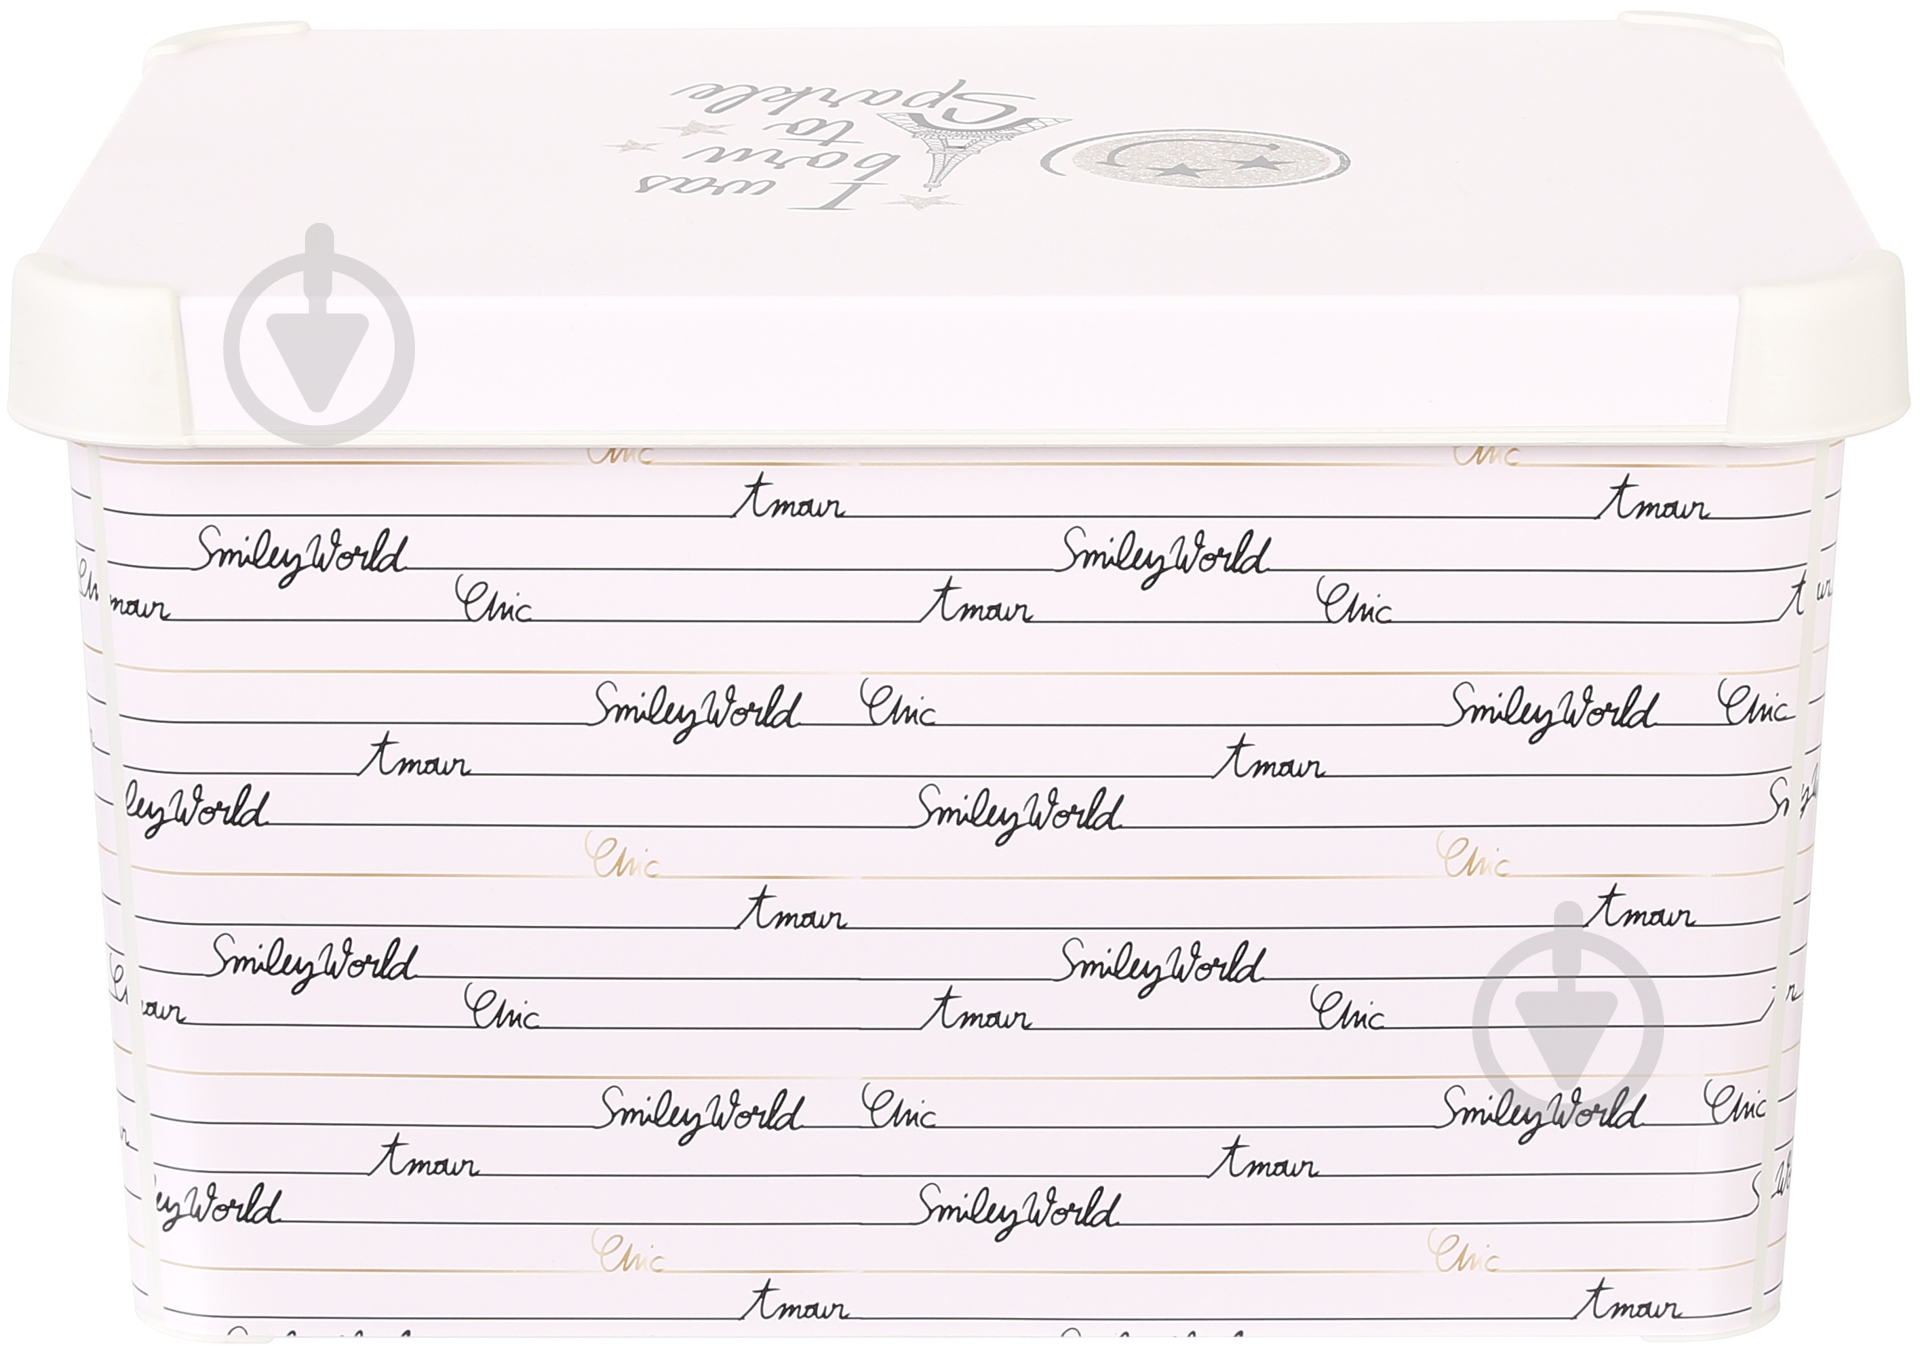 I was
born
to
Sparkle
Chic Chic
Amour Amour
SmileyWorld SmileyWorld
mour Chic Amour Chic
SmileyWorld Chic SmileyWorld Chic
Amour Amour
leyWorld SmileyWorld
Chic Chic
Amour Amour
SmileyWorld SmileyWorld
our Chic Amour Chic
SmileyWorld Chic SmileyWorld Chic
Amour Amour
eyWorld SmileyWorld
Chic Chic
Amour Amour